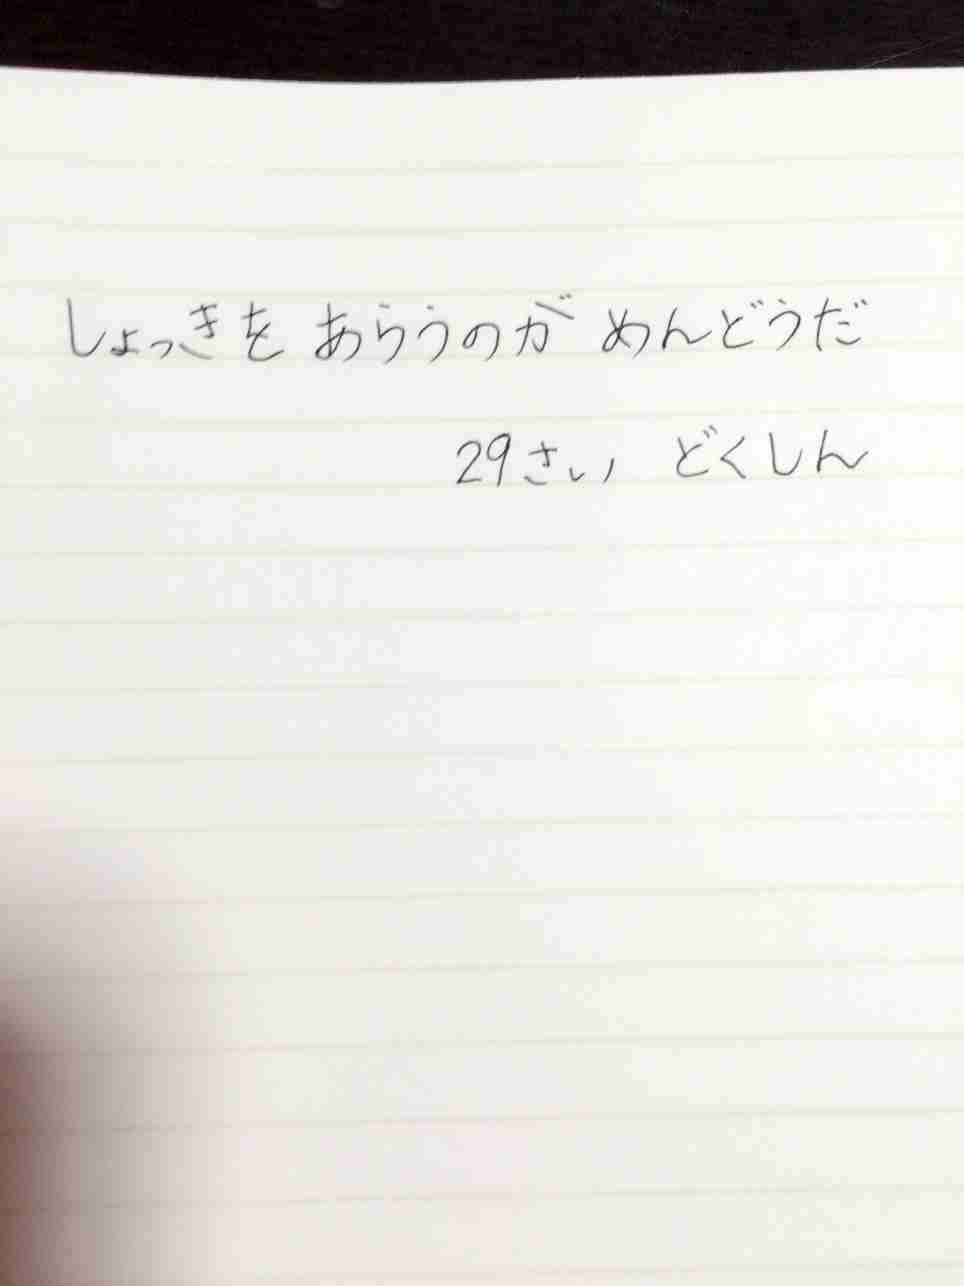 しょっきを あらうのが めんどうだ
29さい どくしん